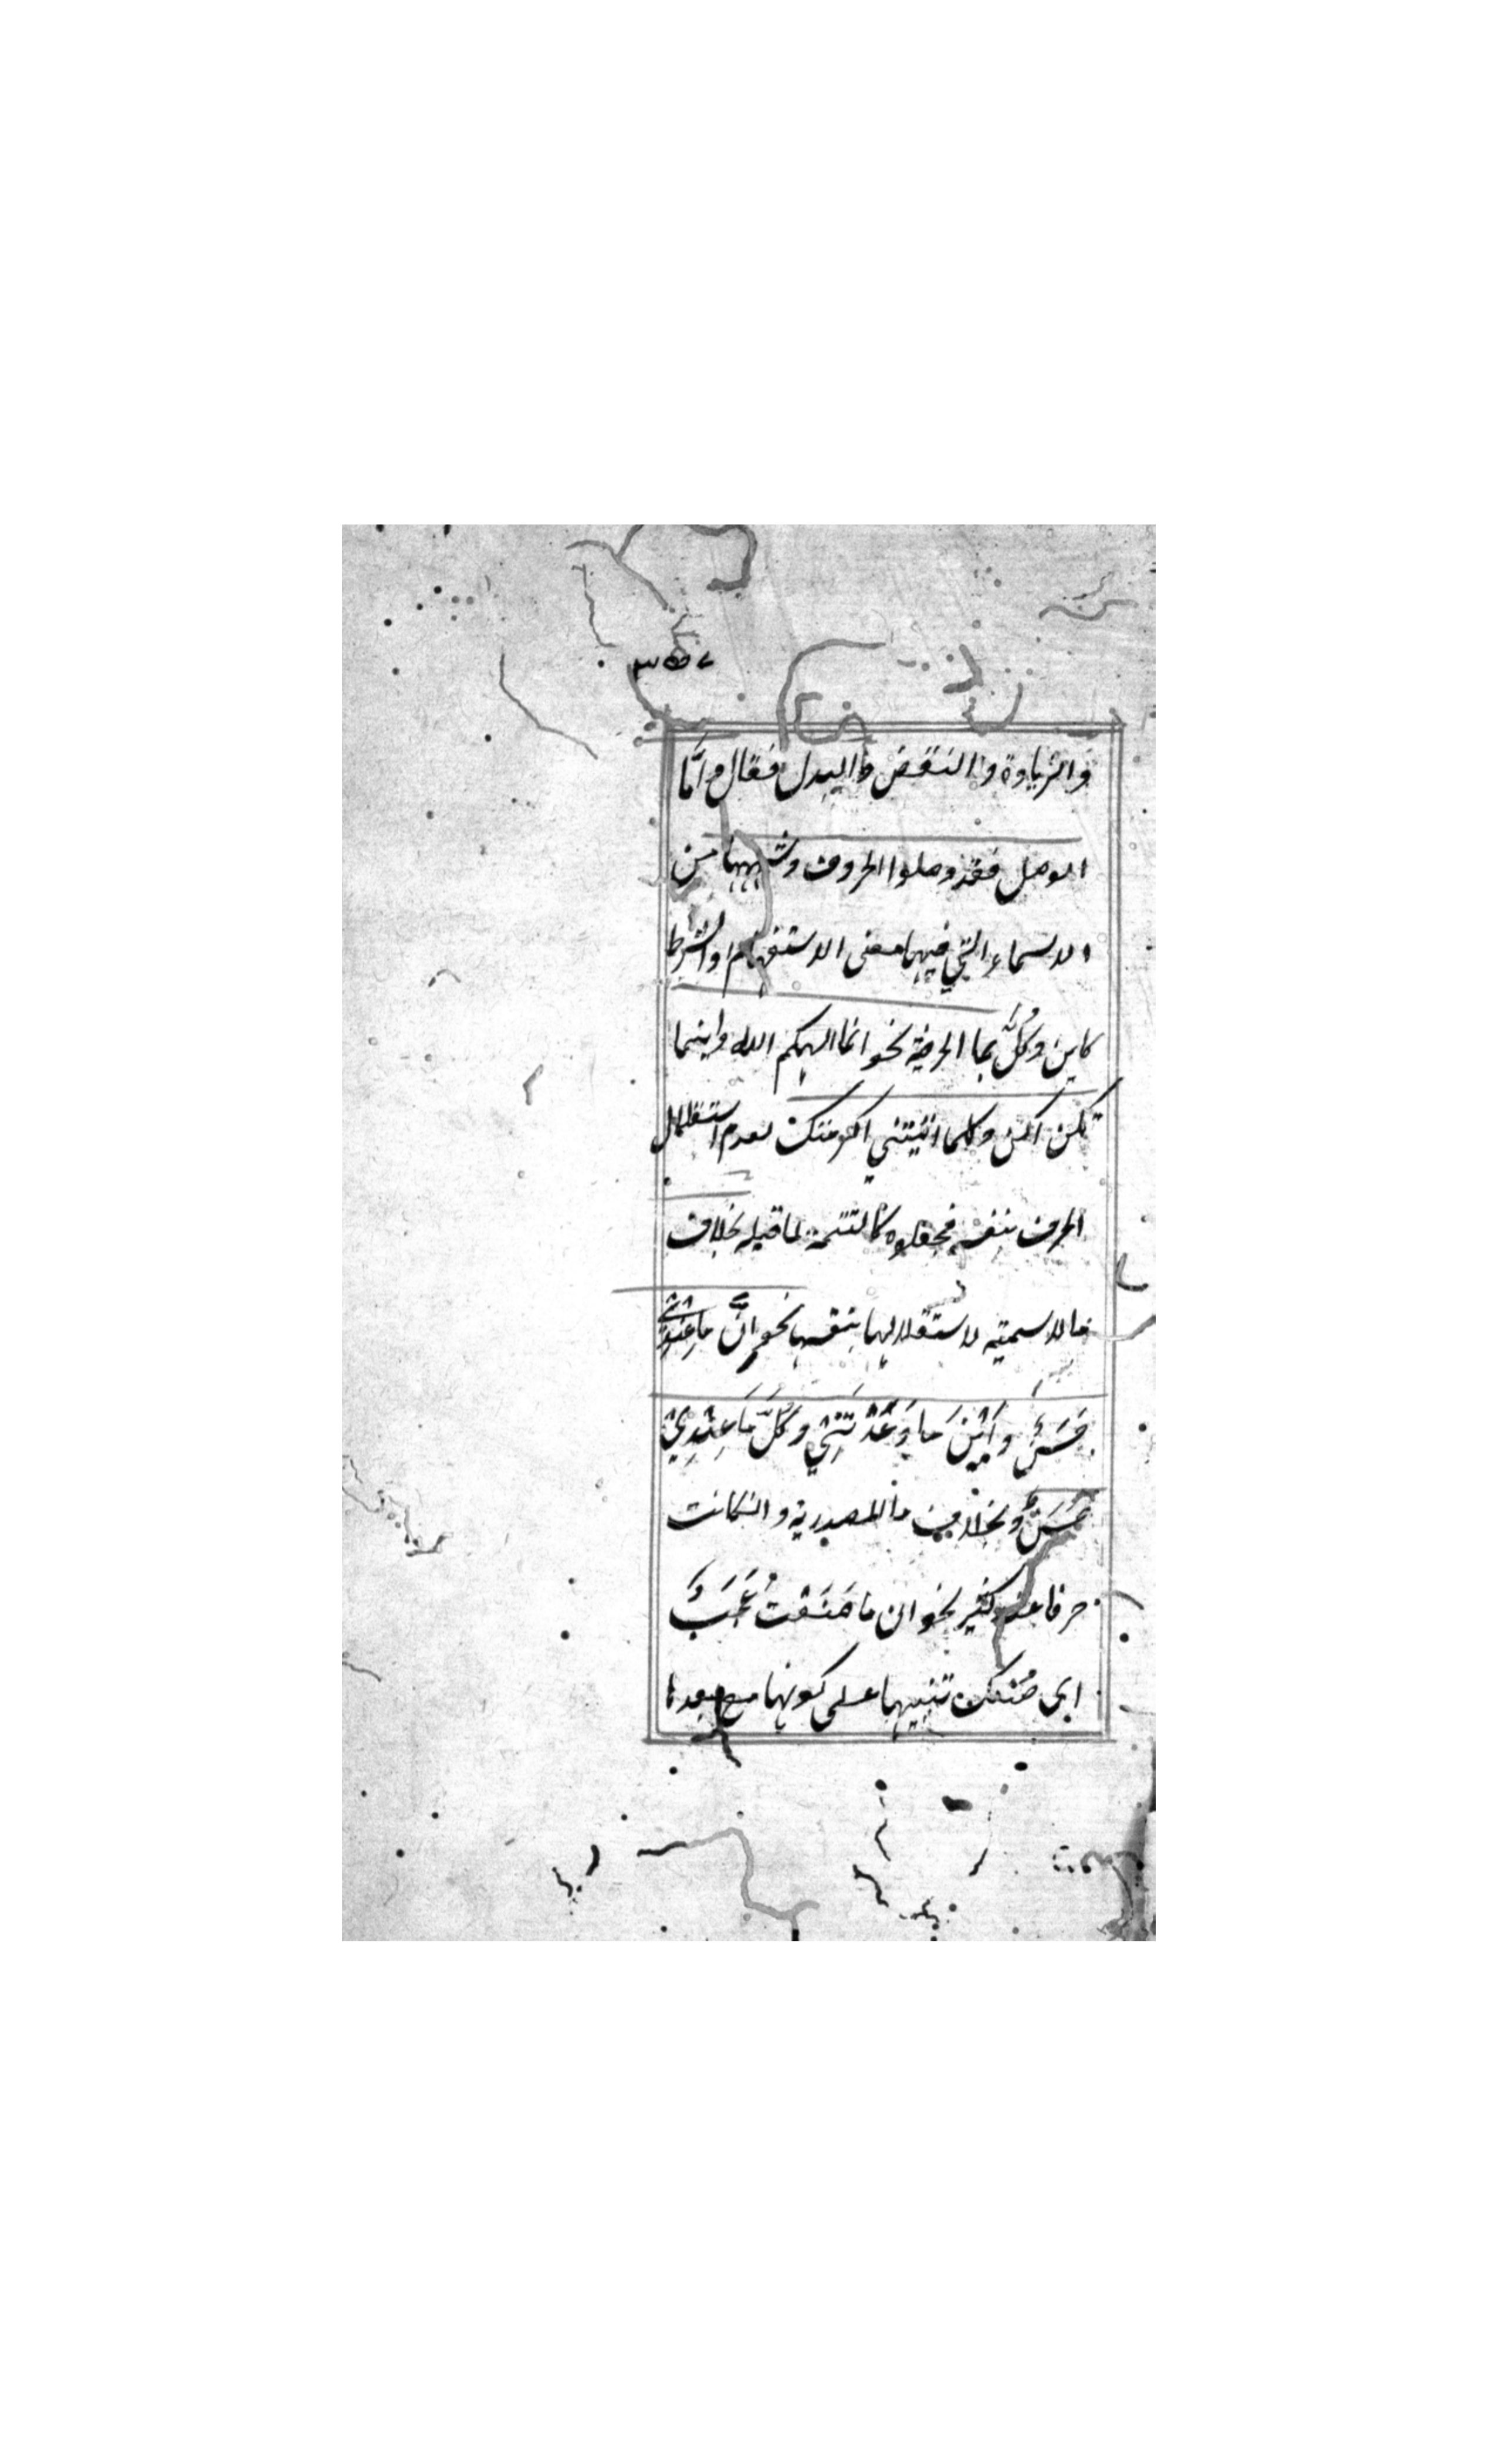 والزيادة والنقص والبدل فقال واما
الوصل فقد وصلوا الحروف وشبهها من
الاسماء التي فيها معنى الاستفهام او الشرط
كاين وكُلَّ بما الحرفية نحو انما الهكم الله واينما
تكن اكن وكلما اتيتني اكرمتك لعدم استقلال
الحرف بنفسه فجعلوه كالتتمة لما قبله بخلاف
ما الاسمية لاستقلالها بنفسها نحو انَّ ما عِنْدِيْ
حَسَنٌ واَيْنَ مَا وَعَدْتَنِيْ وكُلُّ مَا عِنْدِيْ
حَسَنٌ وبخلاف ما المصدرية وان كانت
حرفا عند كثير نحو ان ما صَنَعْتُ عَجَبٌ
اى صنعك تنبيها على كونها مع ما بعدها